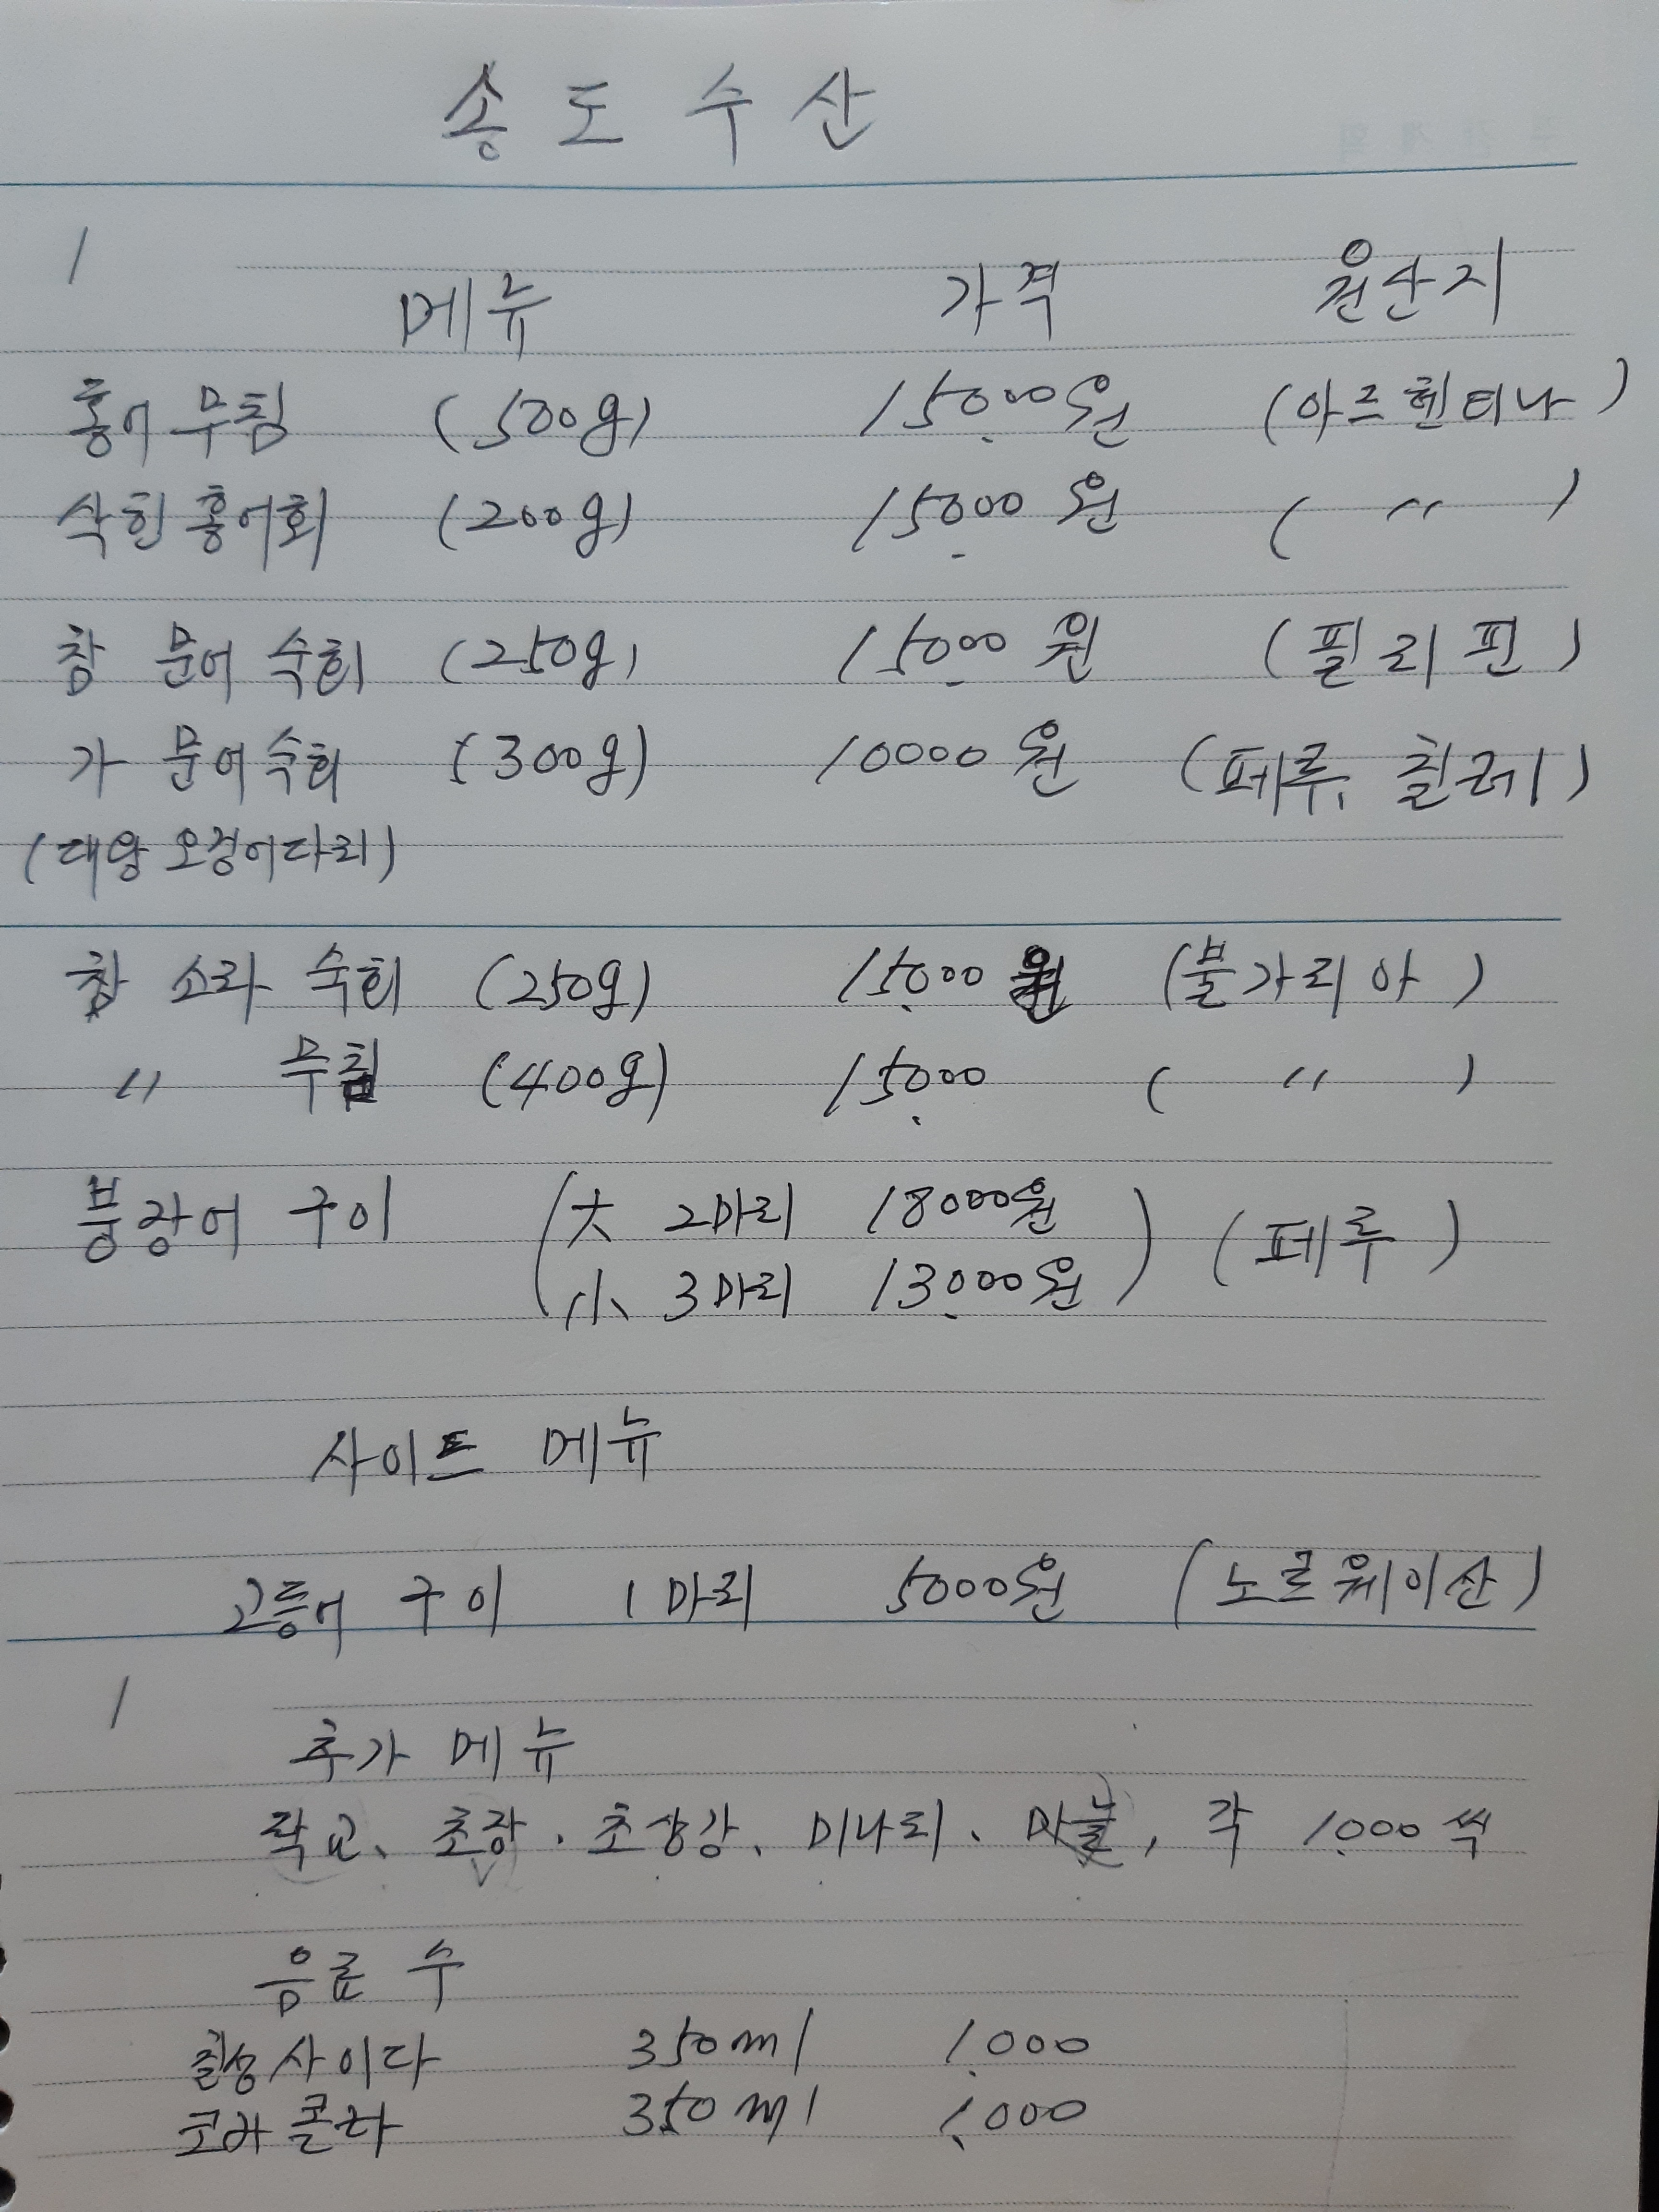 송도수산
/
메뉴 가격 원산지
홍어무침 (500g) 15.000원 (아르헨티나)
삭힌홍어회 (200g) 15.000원 ( 〃 )
참 문어 숙회 (250g) 15.000원 (필리핀)
가 문어숙회 (300g) 10000원 (페루, 칠레)
(대왕오징어다리)
참 소라 숙회 (250g) 15.000원 (불가리아)
〃 무침 (400g) 15.000 ( 〃 )
붕장어 구이 (大 2마리 18000원) (페루)
小 3마리 13.000원
사이드 메뉴
고등어 구이 1마리 5000원 (노르웨이산)
/
추가 메뉴
락교、초장. 초생강、미나리、마늘, 각 1.000씩
음료수
칠성사이다 350ml 1.000
코카콜라 350ml 1.000